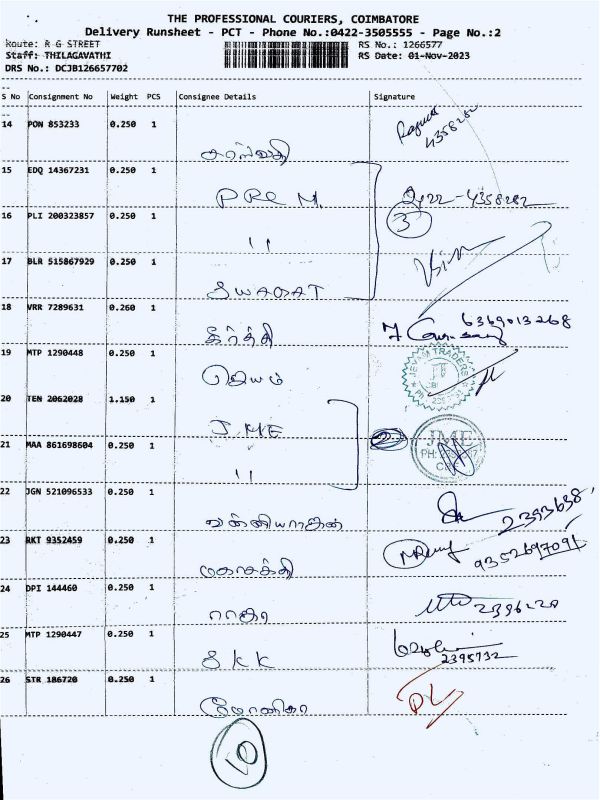 THE PROFESSIONAL COURIERS, COIMBATORE
Delivery Runsheet - PCT - Phone No.:0422-3505555 - Page No.:2
Route: R G STREET
RS No.: 1266577
Staff: THILAGAVATHI
RS Date: 01-Nov-2023
DRS No.: DCJB126657702
S No Consignment No Weight PCS Consignee Details Signature
14 PON 853233 0.250 1
4358282
சரஸ்வதி
15 EDQ 14367231 0.250 1
PREM
4358282
16 PLI 200323857 0.250 1
3
"
17 BLR 515867929 0.250 1
SWAGAT
18 VRR 7289631 0.260 1
6369013268
கீர்த்தி
19 MTP 1290448 0.250 1
JEYAM TRADERS
ஜெயம்
20 TEN 2062028 1.150 1
JME
JME
21 MAA 861698604 0.250 1
"
22 JGN 521096533 0.250 1
2393638
23 RKT 9352459 0.250 1
9352697091
மகாசக்தி
24 DPI 144460 0.250 1
ராதா
25 MTP 1290447 0.250 1
SKK
2395732
26 STR 186720 0.250 1
மோனிகா
10